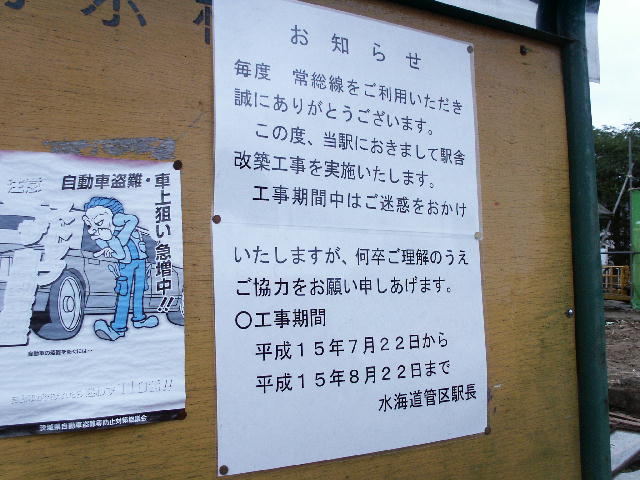 お知らせ
毎度　常総線をご利用いただき
誠にありがとうございます。
この度、当駅におきまして駅舎
改築工事を実施いたします。
工事期間中はご迷惑をおかけ
いたしますが、何卒ご理解のうえ
ご協力をお願い申しあげます。
〇工事期間
平成１５年７月２２日から
平成１５年８月２２日まで
水海道管区駅長
注意
自動車盗難・車上狙い急増中!!
自動車の盗難を防ぐには…
茨城県自動車盗難等防止対策協議会